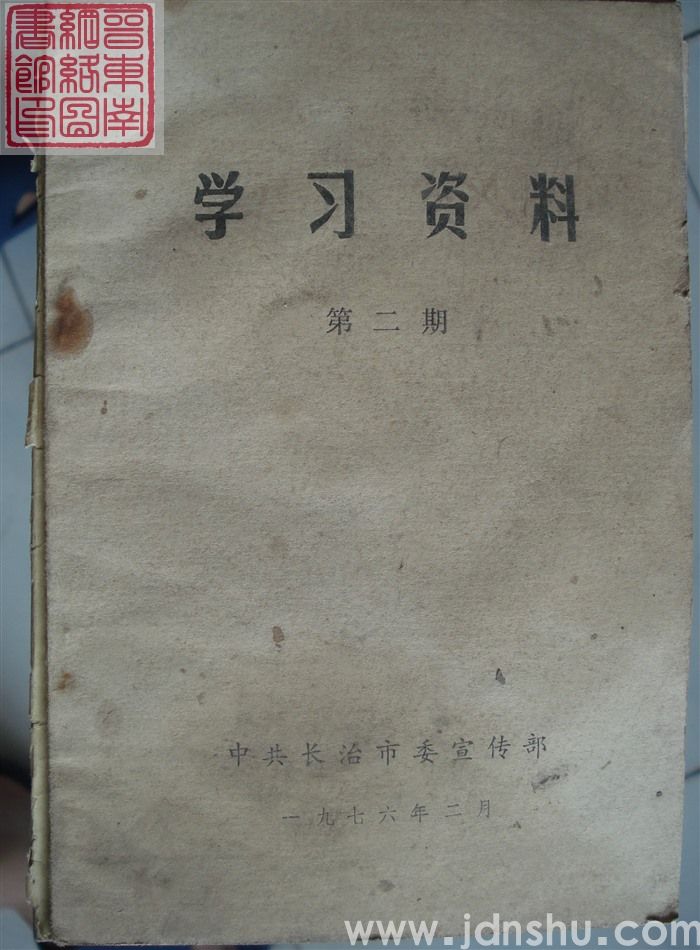 晋东南
網絡圖
書館印
学习资料
第二期
中共长治市委宣传部
一九七六年二月
www.jdnshu.com